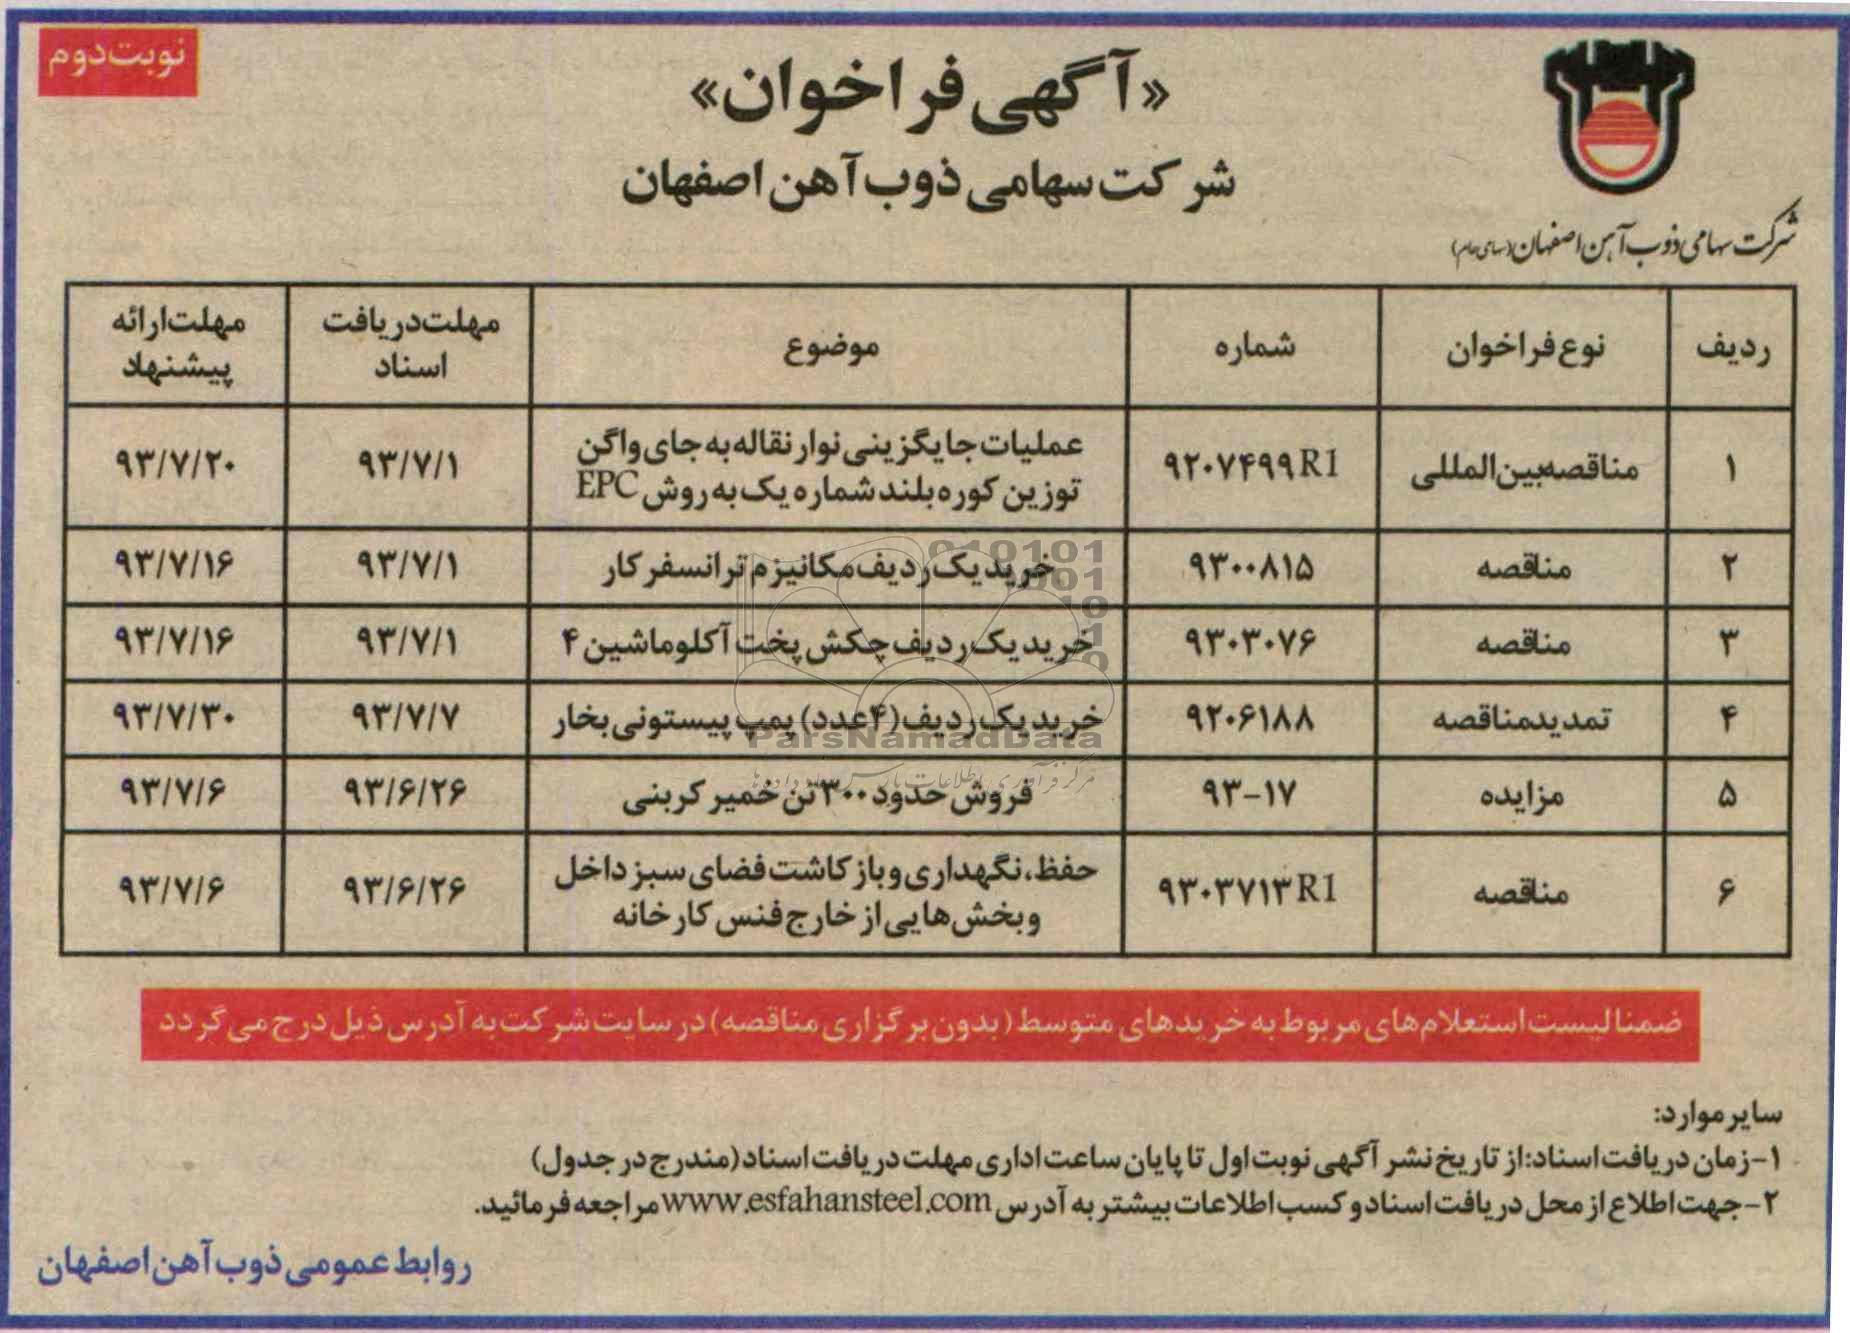 نوبت دوم
«آگهی فراخوان»
شرکت سهامی ذوب آهن اصفهان
شرکت سهامی ذوب آهن اصفهان (سهامی عام)
ردیف نوع فراخوان شماره موضوع مهلت دریافت اسناد مهلت ارائه پیشنهاد
۱ مناقصه بین المللی ۹۲۰۷۴۹۹R1 عملیات جایگزینی نوار نقاله به جای واگن توزین کوره بلند شماره یک به روش EPC ۹۳/۷/۱ ۹۳/۷/۲۰
۲ مناقصه ۹۳۰۰۸۱۵ خرید یک ردیف مکانیزم ترانسفر کار ۹۳/۷/۱ ۹۳/۷/۱۶
۳ مناقصه ۹۳۰۳۰۷۶ خرید یک ردیف چکش پخت آکلوماشین ۴ ۹۳/۷/۱ ۹۳/۷/۱۶
۴ تمدید مناقصه ۹۲۰۶۱۸۸ خرید یک ردیف (۴عدد) پمپ پیستونی بخار ۹۳/۷/۷ ۹۳/۷/۳۰
۵ مزایده ۹۳-۱۷ فروش حدود ۳۰۰ تن خمیر کربنی ۹۳/۶/۲۶ ۹۳/۷/۶
۶ مناقصه ۹۳۰۳۷۱۳R1 حفظ، نگهداری و باز کاشت فضای سبز داخل و بخش هایی از خارج فنس کارخانه ۹۳/۶/۲۶ ۹۳/۷/۶
ParsNamadData
ضمنا لیست استعلام های مربوط به خریدهای متوسط (بدون برگزاری مناقصه) در سایت شرکت به آدرس ذیل درج می گردد
سایر موارد:
۱-زمان دریافت اسناد: از تاریخ نشر آگهی نوبت اول تا پایان ساعت اداری مهلت دریافت اسناد (مندرج در جدول)
۲-جهت اطلاع از محل دریافت اسناد و کسب اطلاعات بیشتر به آدرس www.esfahansteel.com مراجعه فرمائید.
روابط عمومی ذوب آهن اصفهان